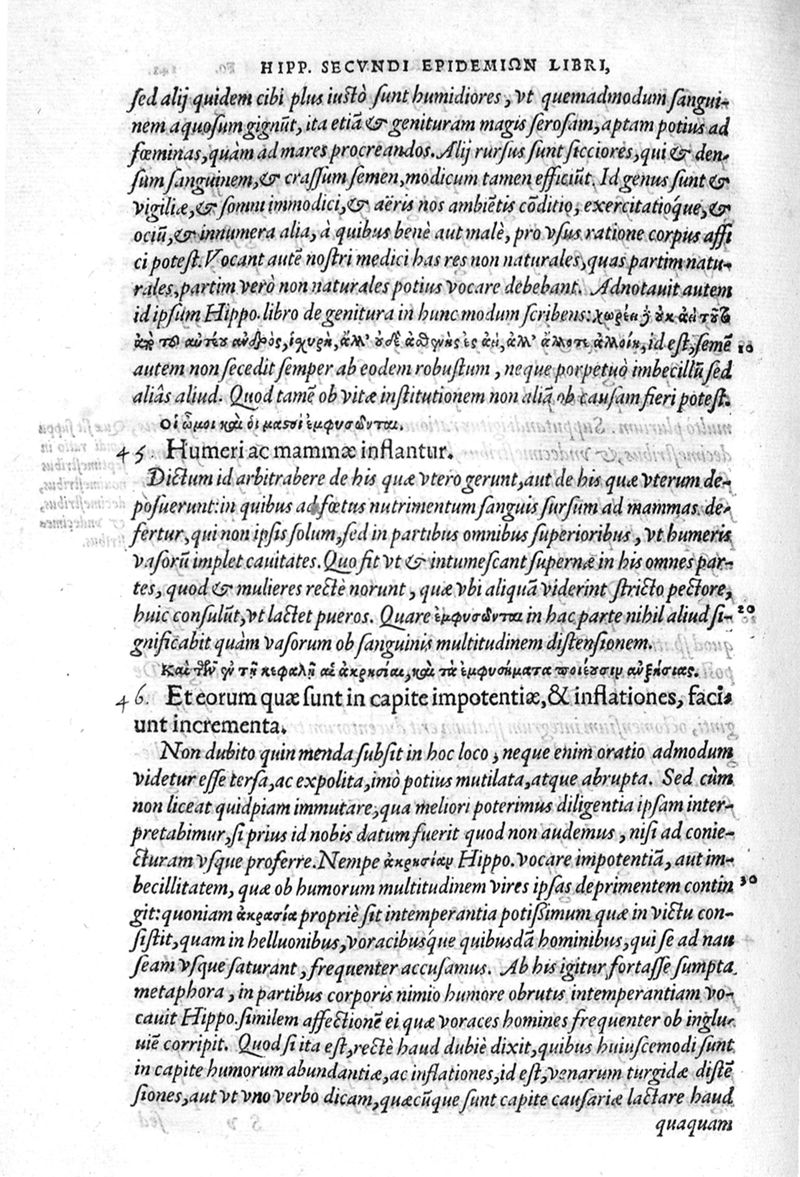 HIPP. SECVNDI EPIDEMIΩN LIBRI,
sed alij quidem cibi plus iustò sunt humidiores, vt quemadmodum sangui-
nem aquosum gignũt, ita etiã & genituram magis serosam, aptam potius ad
fœminas, quàm ad mares procreandos. Alij rursus sunt sicciores, qui & den-
sum sanguinem, & crassum semen, modicum tamen efficiũt. Id genus sunt &
vigiliæ, & somni immodici, & aëris nos ambiẽtis cõditio, exercitatióque, &
ociũ, & innumera alia, à quibus benè aut malè, pro vsus ratione corpus affi
ci potest. Vocant autẽ nostri medici has res non naturales, quas partim natu-
rales, partim verò non naturales potius vocare debebant. Adnotauit autem
id ipsum Hippo. libro de genitura in hunc modum scribens: χωρέει
ἀνδρὸς, ἰχυρὴ, ἀλλ' ἀλλ' ἄλλοτε ἀλλοίη, id est, semẽ 10
autem non secedit semper ab eodem robustum, neque perpetuò imbecillũ sed
aliâs aliud. Quod tamẽ ob vitæ institutionem non aliã ob causam fieri potest.
Οἱ ὦμοι καὶ οἱ μαζοὶ ἐμφυσῶνται.
45. Humeri ac mammæ inflantur.
Dictum id arbitrabere de his quæ vtero gerunt, aut de his quæ vterum de-
posuerunt: in quibus ad fœtus nutrimentum sanguis sursum ad mammas de-
fertur, qui non ipsis solum, sed in partibus omnibus superioribus, vt humeris
vasorũ implet cauitates. Quo fit vt & intumescant supernæ in his omnes par-
tes, quod & mulieres rectè norunt, quæ vbi aliquã viderint stricto pectore,
huic consulũt, vt lactet pueros. Quare ἐμφυσῶνται in hac parte nihil aliud si- 20
gnificabit quàm vasorum ob sanguinis multitudinem distensionem.
Καὶ τῶν ἐν τῇ κεφαλῇ αἱ ἀκρησίαι, καὶ τὰ ἐμφυσήματα ποιέουσιν αὐξήσιας.
46. Et eorum quæ sunt in capite impotentiæ, & inflationes, faci-
unt incrementa.
Non dubito quin menda subsit in hoc loco, neque enim oratio admodum
videtur esse tersa, ac expolita, imò potius mutilata, atque abrupta. Sed cùm
non liceat quidpiam immutare, qua meliori poterimus diligentia ipsam inter-
pretabimur, si prius id nobis datum fuerit quod non audemus, nisi ad conie-
cturam vsque proferre. Nempe ἀκρησίαν Hippo. vocare impotentiã, aut im-
becillitatem, quæ ob humorum multitudinem vires ipsas deprimentem contin 30
git: quoniam ἀκρασία propriè sit intemperantia potißimum quæ in victu con-
sistit, quam in helluonibus, voracibusque quibusdã hominibus, qui se ad nau
seam vsque saturant, frequenter accusamus. Ab his igitur fortasse sumpta
metaphora, in partibus corporis nimio humore obrutis intemperantiam vo-
cauit Hippo. similem affectionẽ ei quæ voraces homines frequenter ob inglu-
uiẽ corripit. Quod si ita est, rectè haud dubiè dixit, quibus huiuscemodi sunt
in capite humorum abundantiæ, ac inflationes, id est, venarum turgidæ distẽ
siones, aut vt vno verbo dicam, quæcũque sunt capite causariæ lactare haud
quaquam